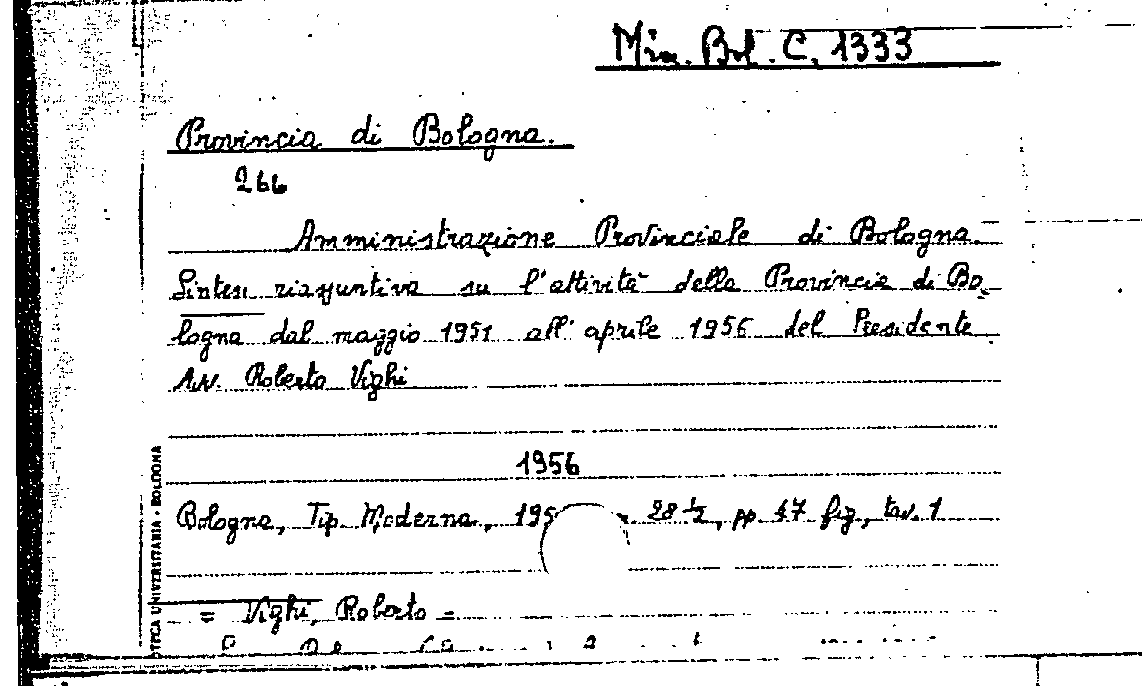 Min. Bol. C. 1333
Provincia di Bologna.
266
Amministrazione Provinciale di Bologna.
Sintesi riassuntiva su l'attività della Provincia di Bo-
logna dal maggio 1951 all'aprile 1956 del Presidente
Avv. Roberto Vighi
1956
Bologna, Tip. Moderna, 195 28 ½, pp. 47 fig., tav. 1
= Vighi, Roberto =
OTECA UNIVERSITARIA - BOLOGNA